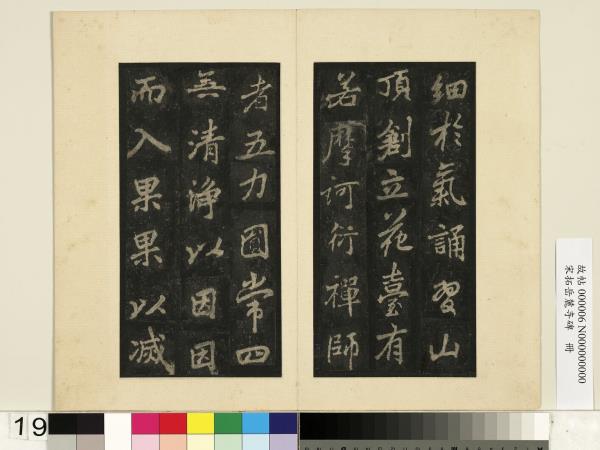 細於氣誦習山
頂創立花臺有
若摩訶衍禪師
者五力圓常四
無清淨以因因
而入果果以滅
故帖 000006 N000000000
宋拓岳麓寺碑 冊
19